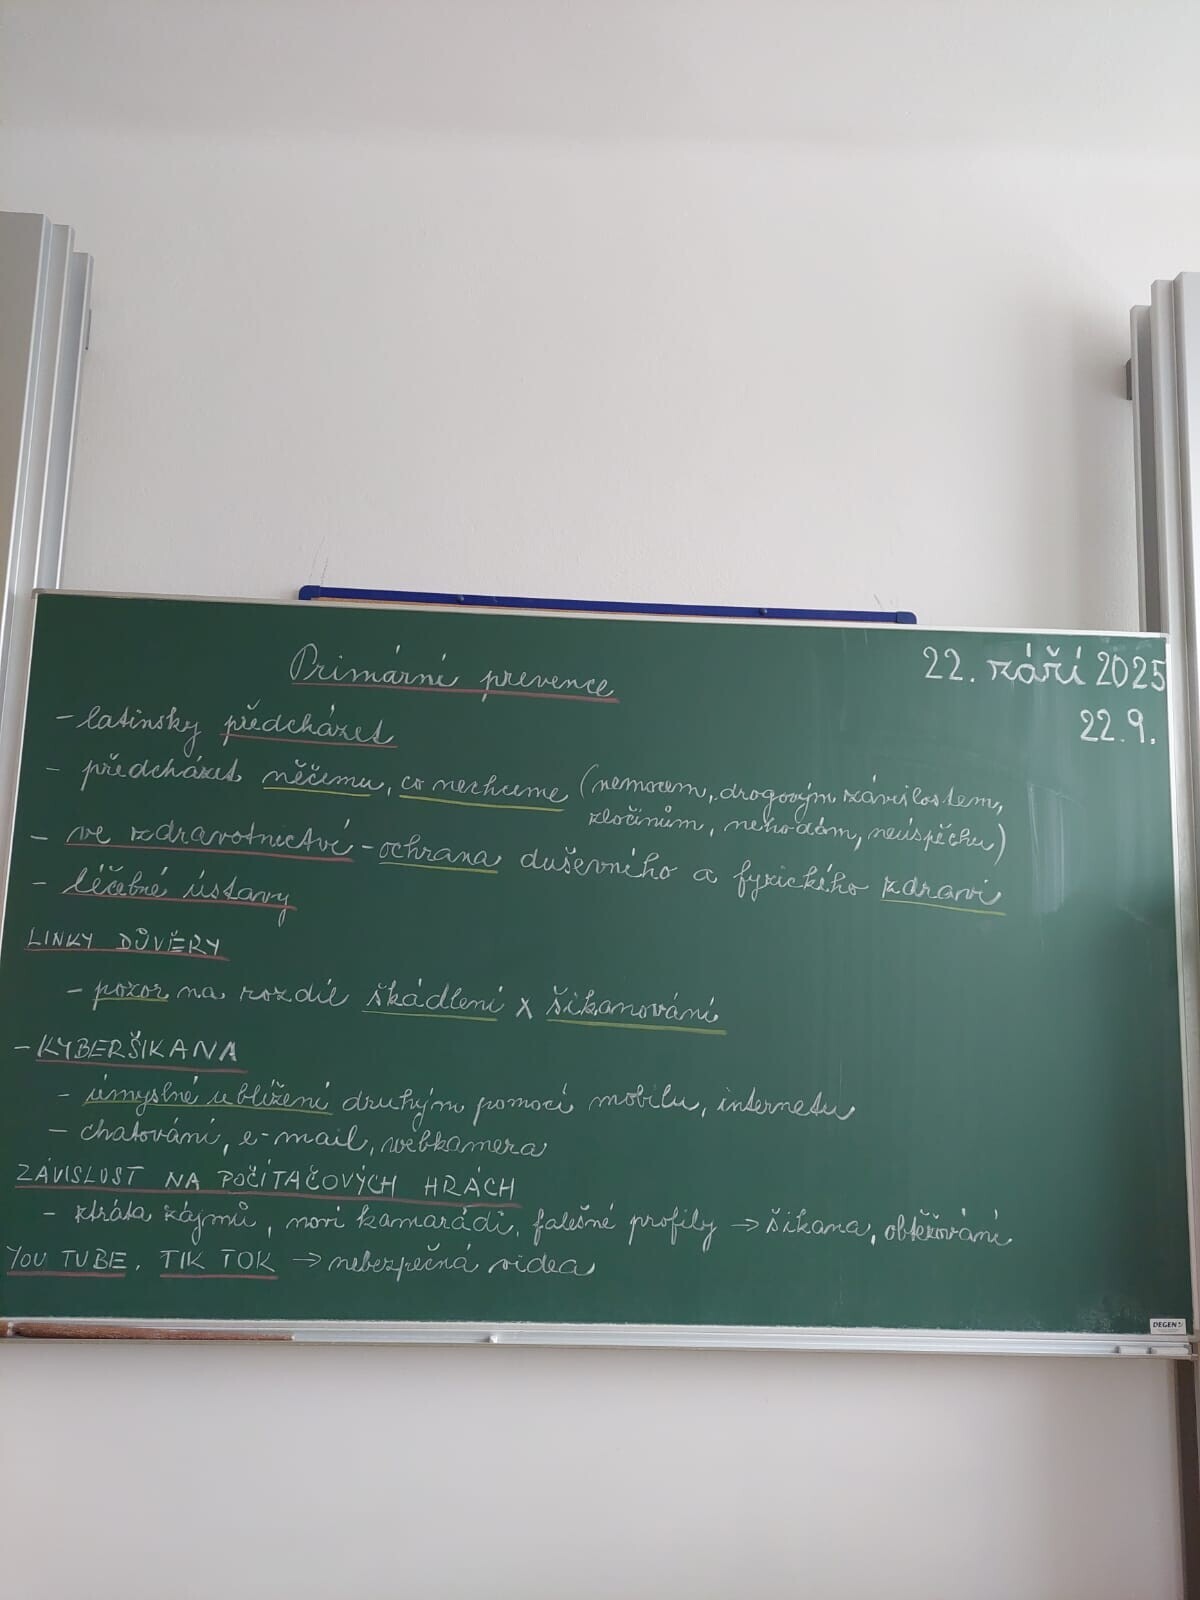 Primární prevence
22. září 2025
22.9.
- latinsky předcházet
- předcházet něčemu, co nechceme (nemocem, drogovým závislostem,
zločinům, nehodám, neúspěchu)
- ve zdravotnictví - ochrana duševního a fyzického zdraví
- léčebné ústavy
LINKY DŮVĚRY
- pozor na rozdíl škádlení x šikanování
- KYBERŠIKANA
- úmyslné ublížení druhým pomocí mobilu, internetu
- chatování, e-mail, webkamera
ZÁVISLOST NA POČÍTAČOVÝCH HRÁCH
- ztráta zájmů, noví kamarádi, falešné profily → šikana, obtěžování
YOU TUBE, TIK TOK → nebezpečná videa
DEGEN